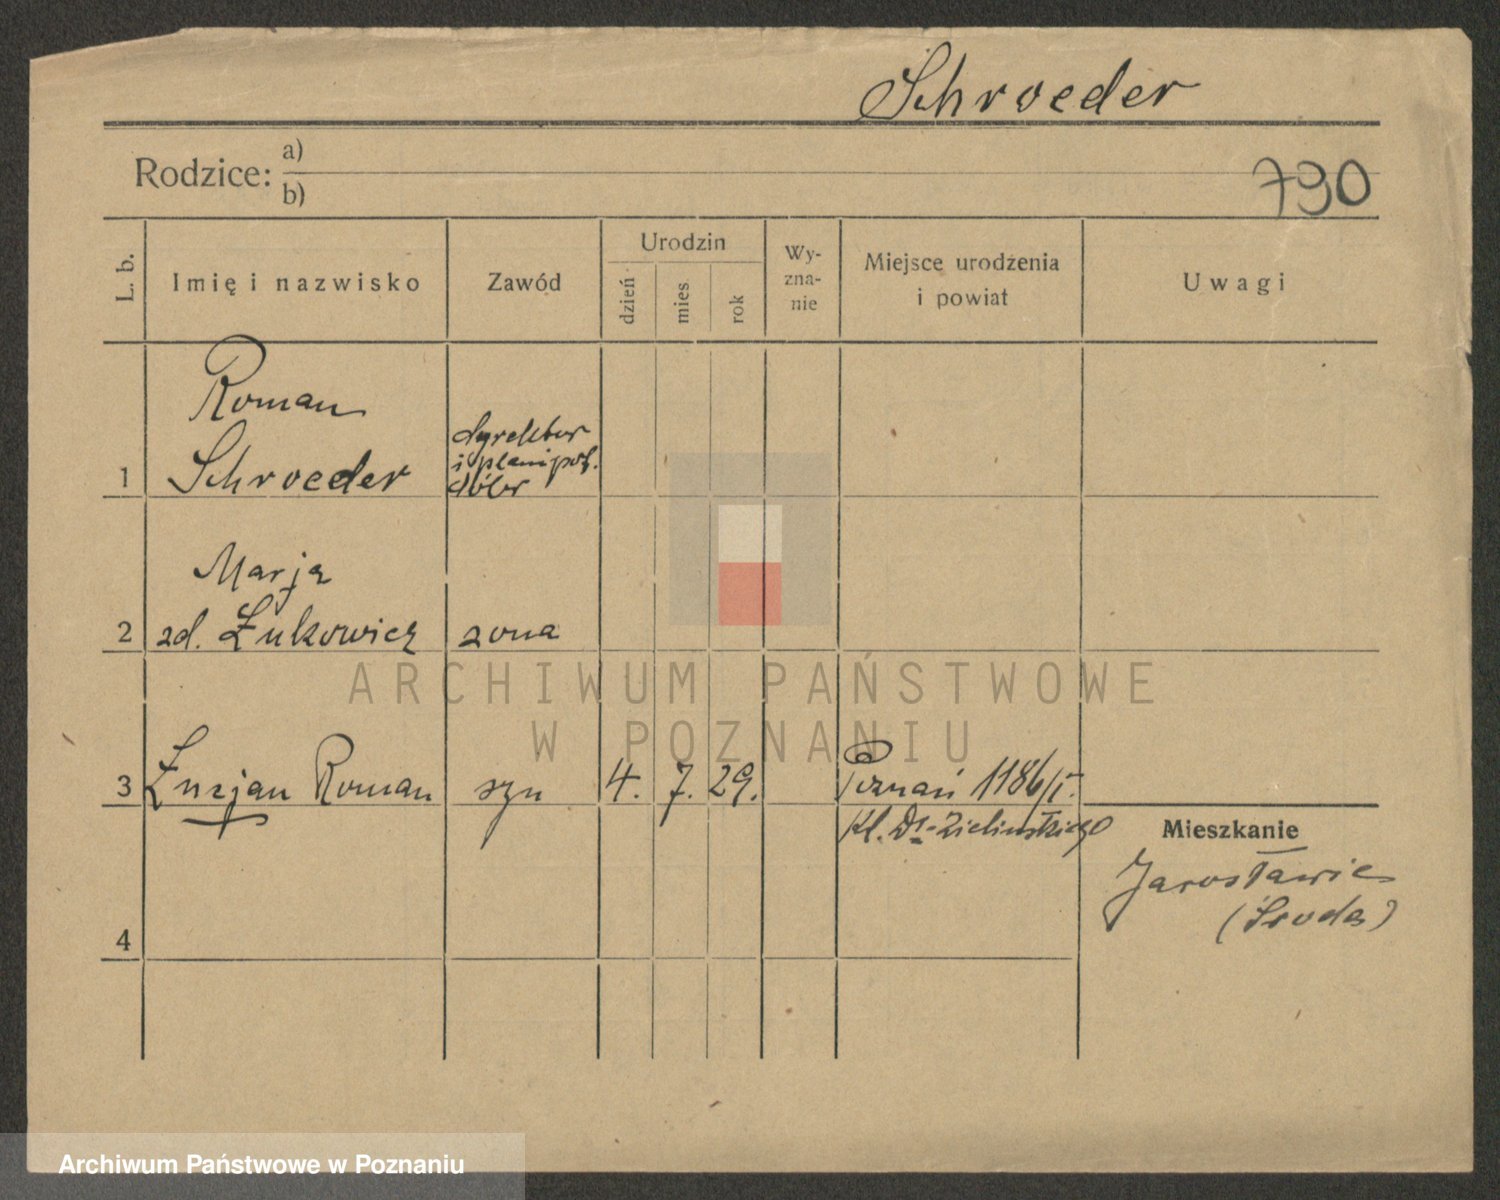 Schroeder
Rodzice: a)
b)
790
L. b.
Imię i nazwisko
Zawód
Urodzin
dzień
mies.
rok
Wy-
zna-
nie
Miejsce urodzenia
i powiat
Uwagi
Roman
1 Schroeder
dyrektor
i plenipot.
dóbr
Marja
2 zd. Łukowicz żona
3 Łucjan Roman syn 4. 7. 29. Poznań 1186/I.
Kl. Dr. Zielińskiego
Mieszkanie
Jarosławic
(Środa)
4
ARCHIWUM PAŃSTWOWE
W POZNANIU
Archiwum Państwowe w Poznaniu